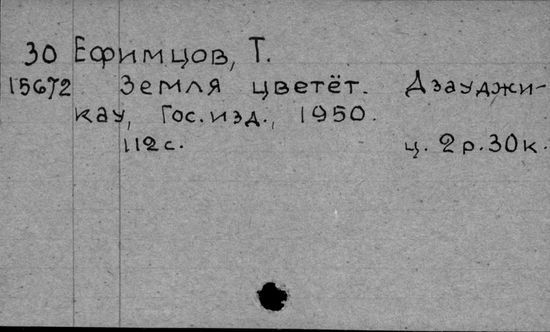 30 Ефимцов, Т.
15672 Земля цветёт. Дзауджи-
кау, Гос. изд., 1950.
112 с. ц. 2 р. 30 к.